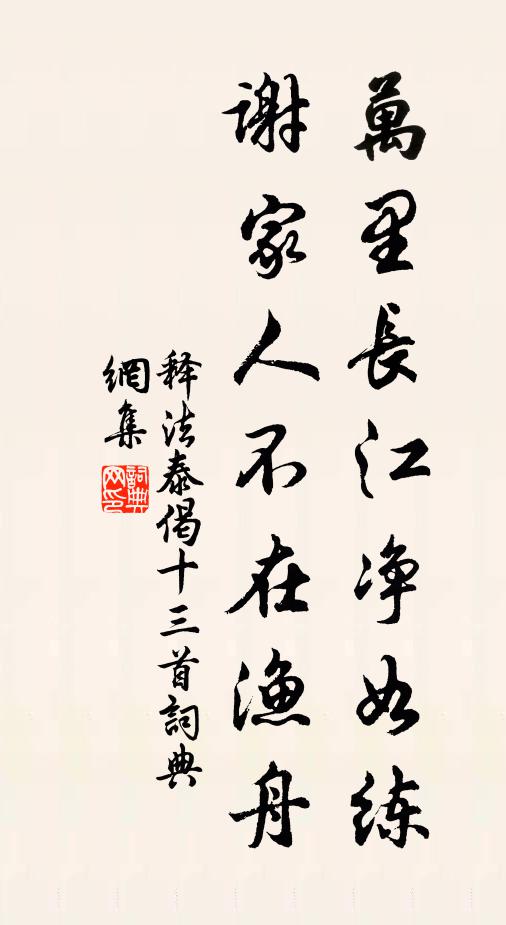 萬里長江净如練
謝家人不在漁舟
释法泰偈十三首詞典
網集
詞典網印